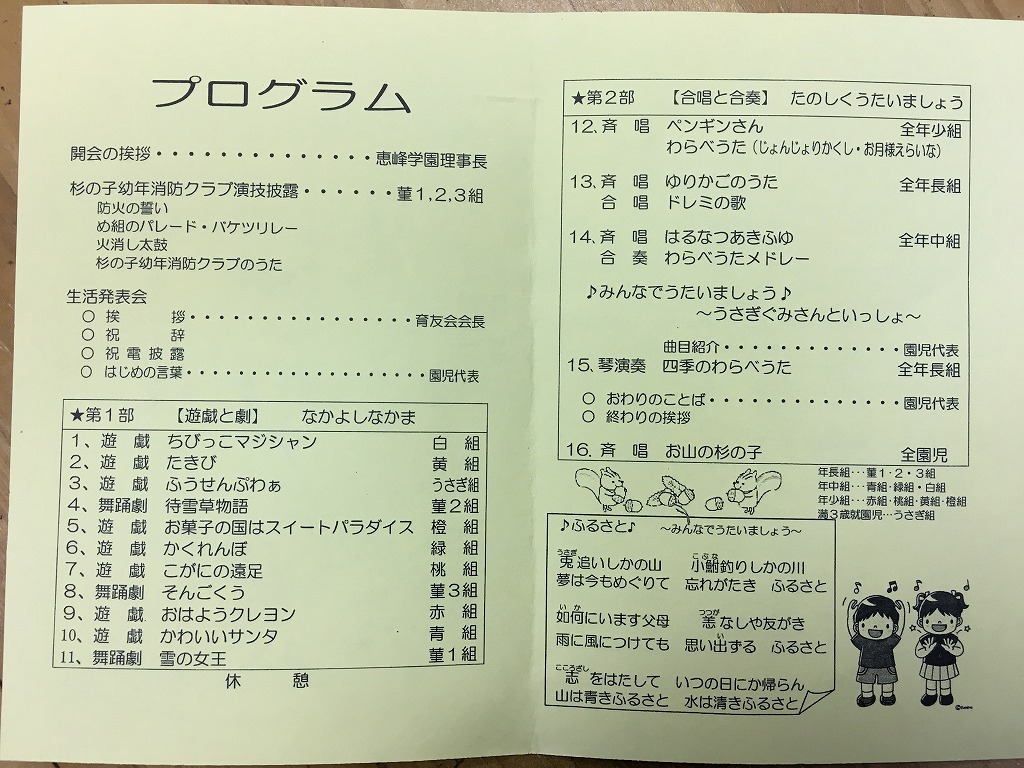 プログラム
開会の挨拶・・・・・・・・・・・・・・恵峰学園理事長
杉の子幼年消防クラブ演技披露・・・・・・菫1,2,3組
防火の誓い
め組のパレード・バケツリレー
火消し太鼓
杉の子幼年消防クラブのうた
生活発表会
○ 挨　　　拶・・・・・・・・・・・・・・・・・育友会会長
○ 祝　　　辞
○ 祝 電 披 露
○ はじめの言葉・・・・・・・・・・・・・・・・・・園児代表
★第1部　【遊戯と劇】　なかよしなかま
1、遊　戯　ちびっこマジシャン　白　組
2、遊　戯　たきび　黄　組
3、遊　戯　ふうせんぶわぁ　うさぎ組
4、舞踊劇　待雪草物語　菫2組
5、遊　戯　お菓子の国はスイートパラダイス　橙　組
6、遊　戯　かくれんぼ　緑　組
7、遊　戯　こがにの遠足　桃　組
8、舞踊劇　そんごくう　菫3組
9、遊　戯　おはようクレヨン　赤　組
10、遊　戯　かわいいサンタ　青　組
11、舞踊劇　雪の女王　菫1組
休　　憩
★第2部　【合唱と合奏】　たのしくうたいましょう
12、斉　唱　ペンギンさん　全年少組
わらべうた（じょんじょりかくし・お月様えらいな）
13、斉　唱　ゆりかごのうた　全年長組
合　唱　ドレミの歌
14、斉　唱　はるなつあきふゆ　全年中組
合　奏　わらべうたメドレー
♪みんなでうたいましょう♪
～うさぎぐみさんといっしょ～
曲目紹介・・・・・・・・・・・・・園児代表
15、琴演奏　四季のわらべうた　全年長組
○ おわりのことば・・・・・・・・・・・・・・園児代表
○ 終わりの挨拶
16、斉　唱　お山の杉の子　全園児
年長組・・・菫1・2・3組
年中組・・・青組・緑組・白組
年少組・・・赤組・桃組・黄組・橙組
満3歳就園児・・・うさぎ組
♪ふるさと♪　～みんなでうたいましょう～
うさぎ　こぶな
兎追いしかの山　小鮒釣りしかの川
夢は今もめぐりて　忘れがたき　ふるさと
いか　つつが
如何にいます父母　恙なしや友がき
い
雨に風につけても　思い出ずる　ふるさと
こころざし
志 をはたして　いつの日にか帰らん
山は青きふるさと　水は清きふるさと